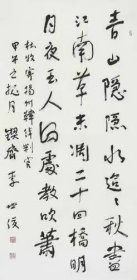 青山隐隐水迢迢秋尽
江南草未凋二十四桥明
月夜玉人何处教吹箫
杜牧寄扬州韩绰判官
甲午之